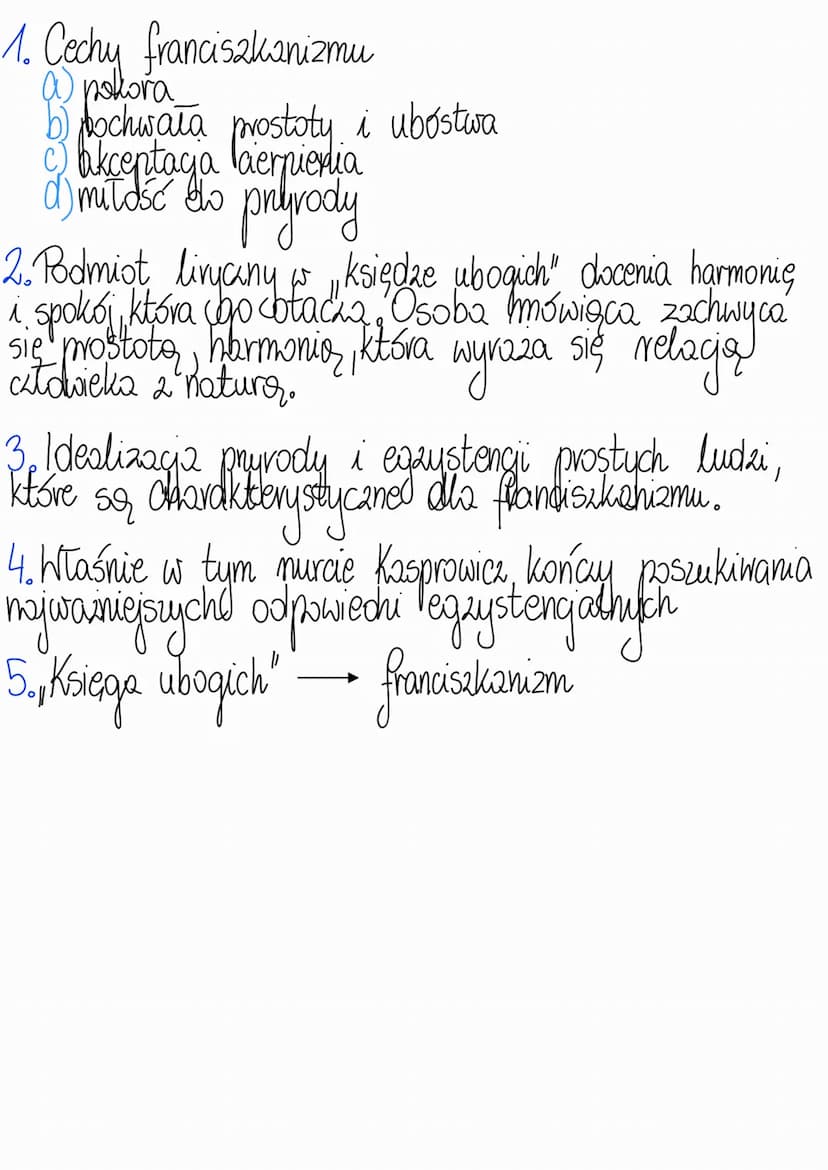 1. Cechy franciszkanizmu
a) pokora
b) pochwała prostoty i ubóstwa
c) akceptacja cierpienia
d) miłość do przyrody
2. Podmiot liryczny w „księdze ubogich" docenia harmonię
i spokój, która go otacza. Osoba mówiąca zachwyca
się prostotą, harmonią, która wyraża się relacją
człowieka z naturą.
3. Idealizacja przyrody i egzystencji prostych ludzi,
które są charakterystyczne dla franciszkanizmu.
4. Właśnie w tym nurcie Kasprowicz kończy poszukiwania
najważniejszych odpowiedzi egzystencjalnych
5. „Księga ubogich" → franciszkanizm